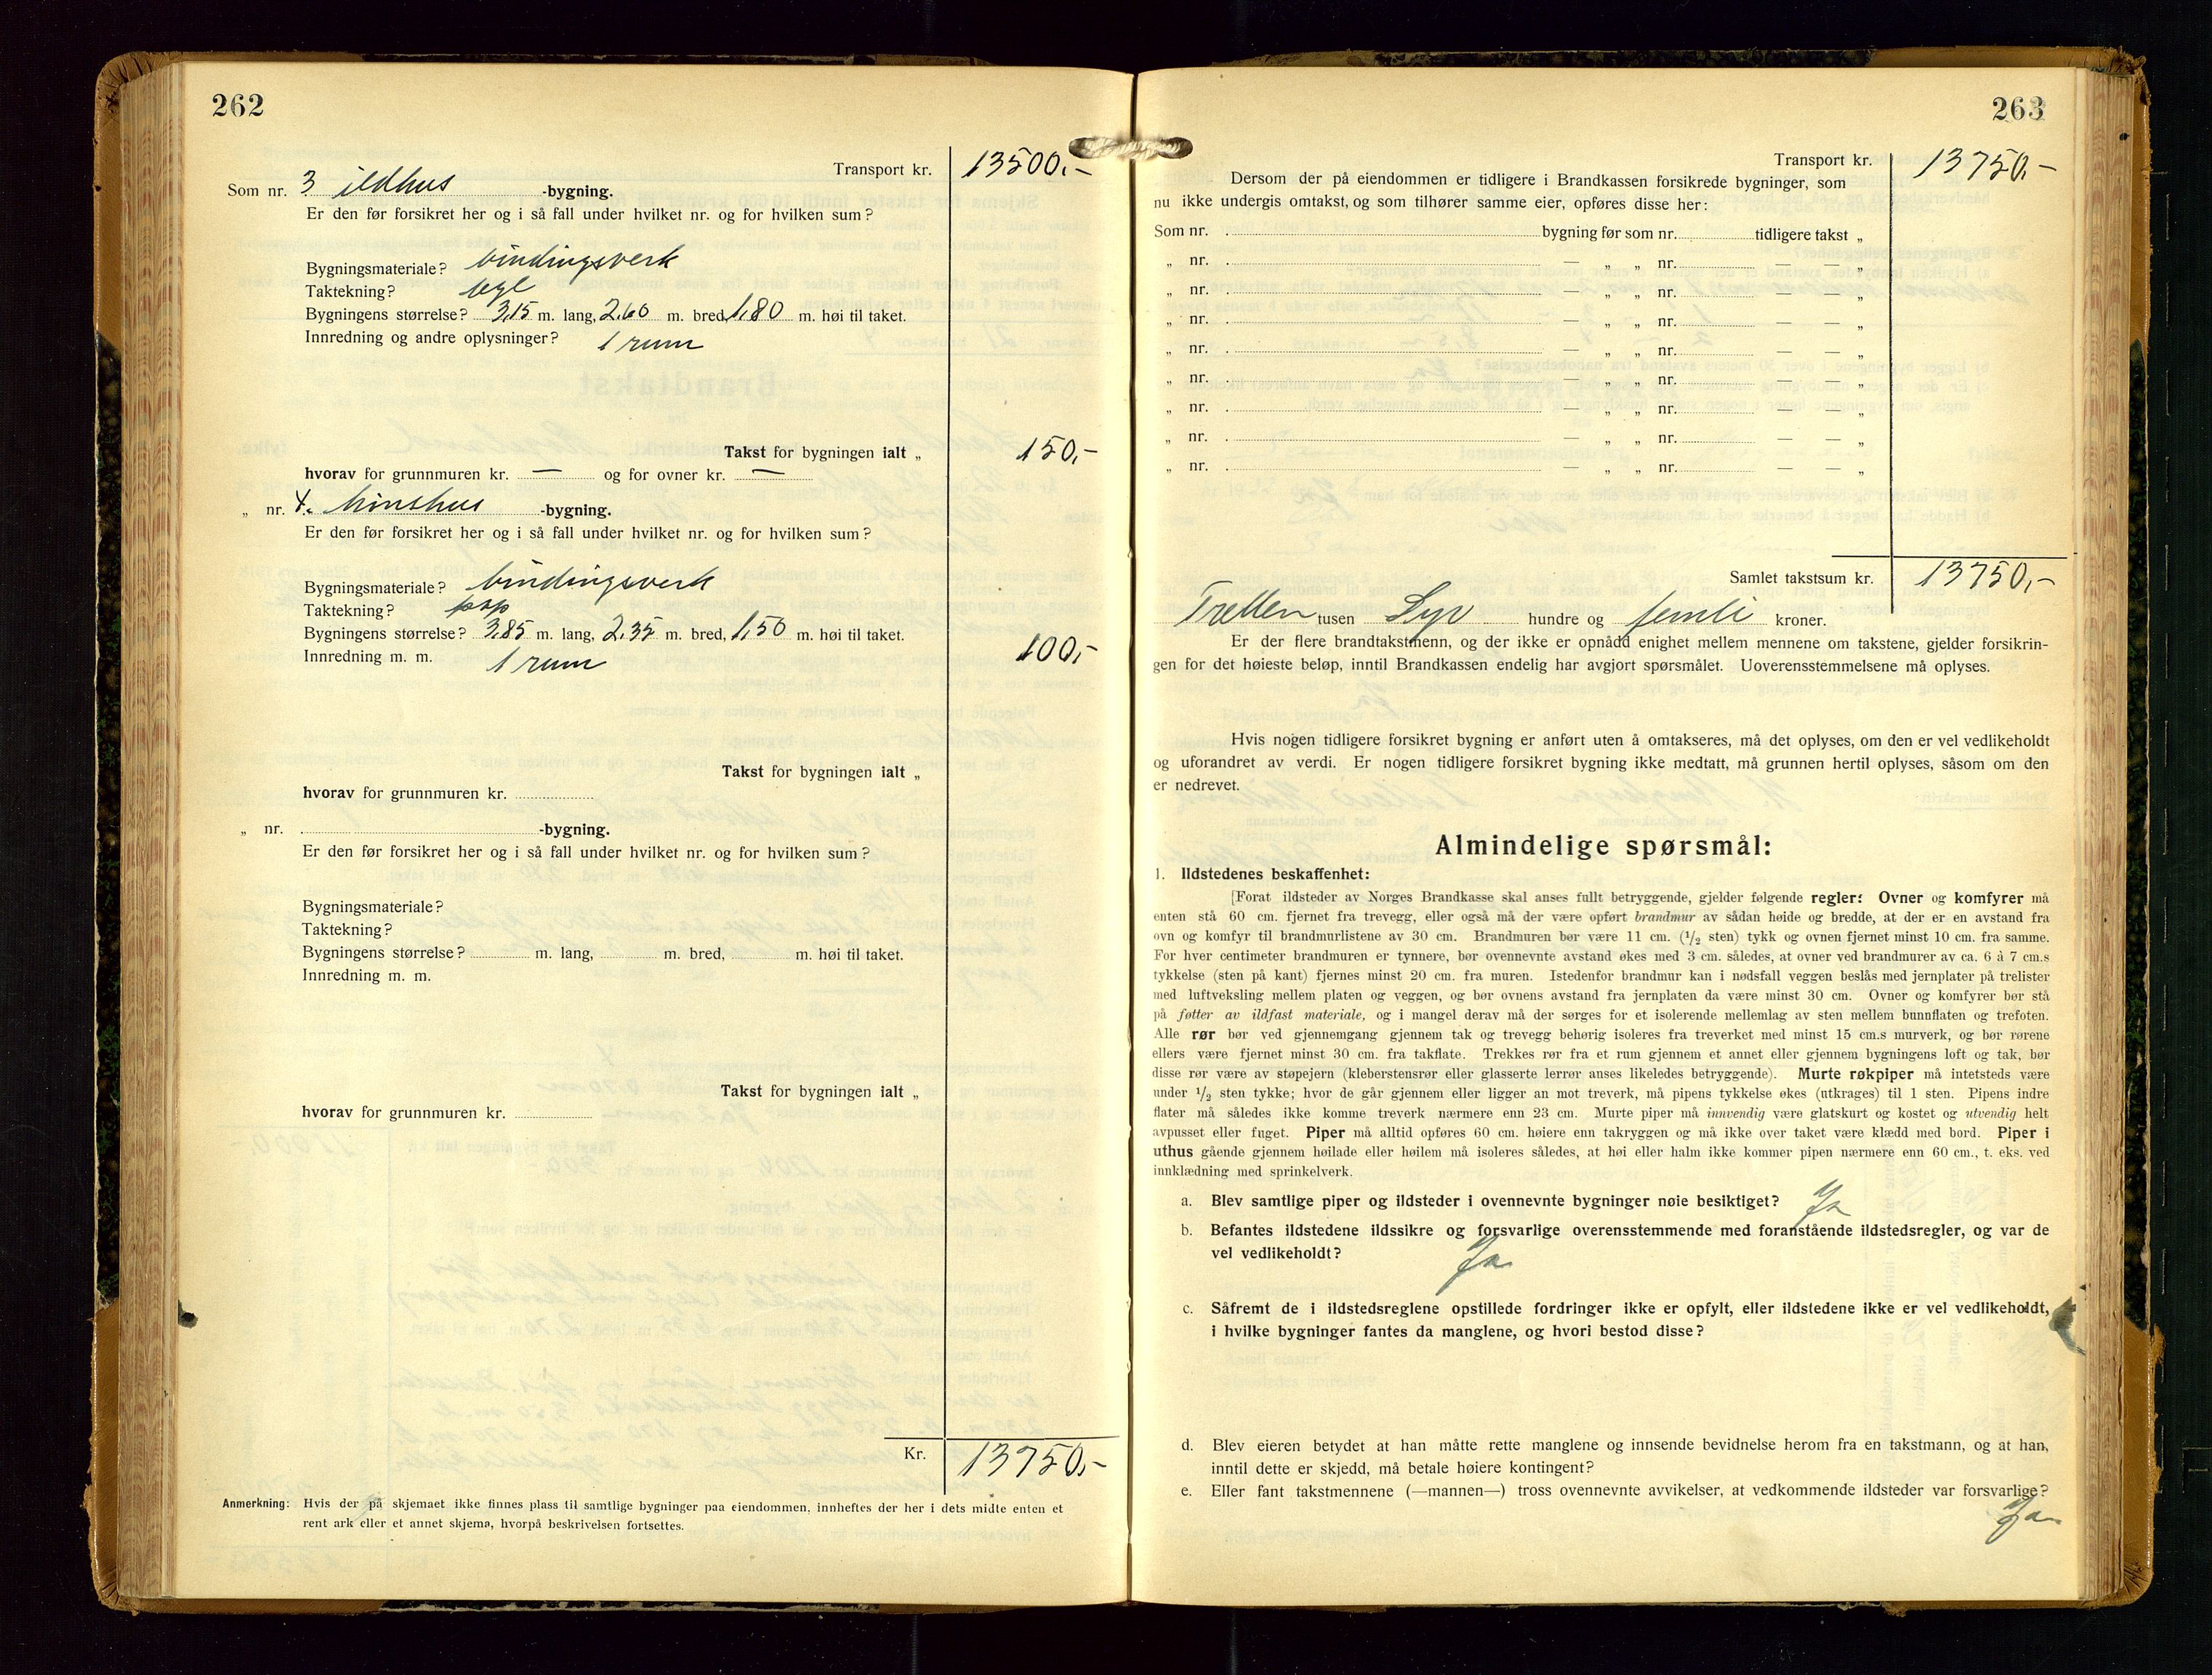 262
Transport kr. 13500,-
Som nr. 3 ildhus -bygning.
Er den før forsikret her og i så fall under hvilket nr. og for hvilken sum?
Bygningsmateriale? bindingsverk
Taktekning? tegl
Bygningens størrelse? 3,15 m. lang, 2,60 m. bred, 1,80 m. høi til taket.
Innredning og andre oplysninger? 1 rum
Takst for bygningen ialt „ 150,-
hvorav for grunnmuren kr. — og for ovner kr. —
„ nr. 4. hönshus -bygning.
Er den før forsikret her og i så fall under hvilket nr. og for hvilken sum?
Bygningsmateriale? bindingsverk
Taktekning? papp
Bygningens størrelse? 3,85 m. lang, 2,35 m. bred, 1,50 m. høi til taket.
Innredning m. m. 1 rum 100,-
Takst for bygningen ialt „
hvorav for grunnmuren kr.
„ nr. -bygning.
Er den før forsikret her og i så fall under hvilket nr. og for hvilken sum?
Bygningsmateriale?
Taktekning?
Bygningens størrelse? m. lang, m. bred, m. høi til taket.
Innredning m. m.
Takst for bygningen ialt „
hvorav for grunnmuren kr.
Kr. 13750,-
Anmerkning: Hvis der på skjemaet ikke finnes plass til samtlige bygninger paa eiendommen, innheftes der her i dets midte enten et
rent ark eller et annet skjema, hvorpå beskrivelsen fortsettes.
263
Transport kr. 13750,-
Dersom der på eiendommen er tidligere i Brandkassen forsikrede bygninger, som
nu ikke undergis omtakst, og som tilhører samme eier, opføres disse her:
Som nr. bygning før som nr. tidligere takst „
„ nr. — „ „ nr. — — „
„ nr. — „ „ nr. — — „
„ nr. — „ „ nr. — — „
„ nr. — „ „ nr. — — „
„ nr. — „ „ nr. — — „
„ nr. — „ „ nr. — — „
„ nr. — „ „ nr. — — „
„ nr. — „ „ nr. — — „
Samlet takstsum kr. 13750,-
Tretten tusen Syv hundre og femti kroner.
Er der flere brandtakstmenn, og der ikke er opnådd enighet mellem mennene om takstene, gjelder forsikrin-
gen for det høieste beløp, inntil Brandkassen endelig har avgjort spørsmålet. Uoverensstemmelsene må oplyses.
Hvis nogen tidligere forsikret bygning er anført uten å omtakseres, må det oplyses, om den er vel vedlikeholdt
og uforandret av verdi. Er nogen tidligere forsikret bygning ikke medtatt, må grunnen hertil oplyses, såsom om den
er nedrevet.
Almindelige spørsmål:
1. Ildstedenes beskaffenhet:
[Forat ildsteder av Norges Brandkasse skal anses fullt betryggende, gjelder følgende regler: Ovner og komfyrer må
enten stå 60 cm. fjernet fra trevegg, eller også må der være opført brandmur av sådan høide og bredde, at der er en avstand fra
ovn og komfyr til brandmurlistene av 30 cm. Brandmuren bør være 11 cm. (1/2 sten) tykk og ovnen fjernet minst 10 cm. fra samme.
For hver centimeter brandmuren er tynnere, bør ovennevnte avstand økes med 3 cm. således, at ovner ved brandmurer av ca. 6 à 7 cm.s
tykkelse (sten på kant) fjernes minst 20 cm. fra muren. Istedenfor brandmur kan i nødsfall veggen beslås med jernplater på trelister
med luftveksling mellem platen og veggen, og bør ovnens avstand fra jernplaten da være minst 30 cm. Ovner og komfyrer bør stå
på føtter av ildfast materiale, og i mangel derav må der sørges for et isolerende mellemlag av sten mellem bunnflaten og trefoten.
Alle rør bør ved gjennemgang gjennem tak og trevegg behørig isoleres fra treverket med minst 15 cm.s murverk, og bør rørene
ellers være fjernet minst 30 cm. fra takflate. Trekkes rør fra et rum gjennem et annet eller gjennem bygningens loft og tak, bør
disse rør være av støpejern (kleberstensrør eller glasserte lerrør anses likeledes betryggende). Murte røkpiper må intetsteds være
under 1/2 sten tykke; hvor de går gjennem eller ligger an mot treverk, må pipens tykkelse økes (utkrages) til 1 sten. Pipens indre
flater må således ikke komme treverk nærmere enn 23 cm. Murte piper må innvendig være glatskurt og kostet og utvendig helt
avpusset eller fuget. Piper må alltid opføres 60 cm. høiere enn takryggen og må ikke over taket være klædd med bord. Piper i
uthus gående gjennem høilade eller høilem må isoleres således, at høi eller halm ikke kommer pipen nærmere enn 60 cm., t. eks. ved
innklædning med sprinkelverk.
a. Blev samtlige piper og ildsteder i ovennevnte bygninger nøie besiktiget? Ja
b. Befantes ildstedene ildssikre og forsvarlige overensstemmende med foranstående ildstedsregler, og var de
vel vedlikeholdt? Ja
c. Såfremt de i ildstedsreglene opstillede fordringer ikke er opfylt, eller ildstedene ikke er vel vedlikeholdt,
i hvilke bygninger fantes da manglene, og hvori bestod disse?
d. Blev eieren betydet at han måtte rette manglene og innsende bevidnelse herom fra en takstmann, og at han,
inntil dette er skjedd, må betale høiere kontingent?
e. Eller fant takstmennene (—mannen—) tross ovennevnte avvikelser, at vedkommende ildsteder var forsvarlige?
Ja